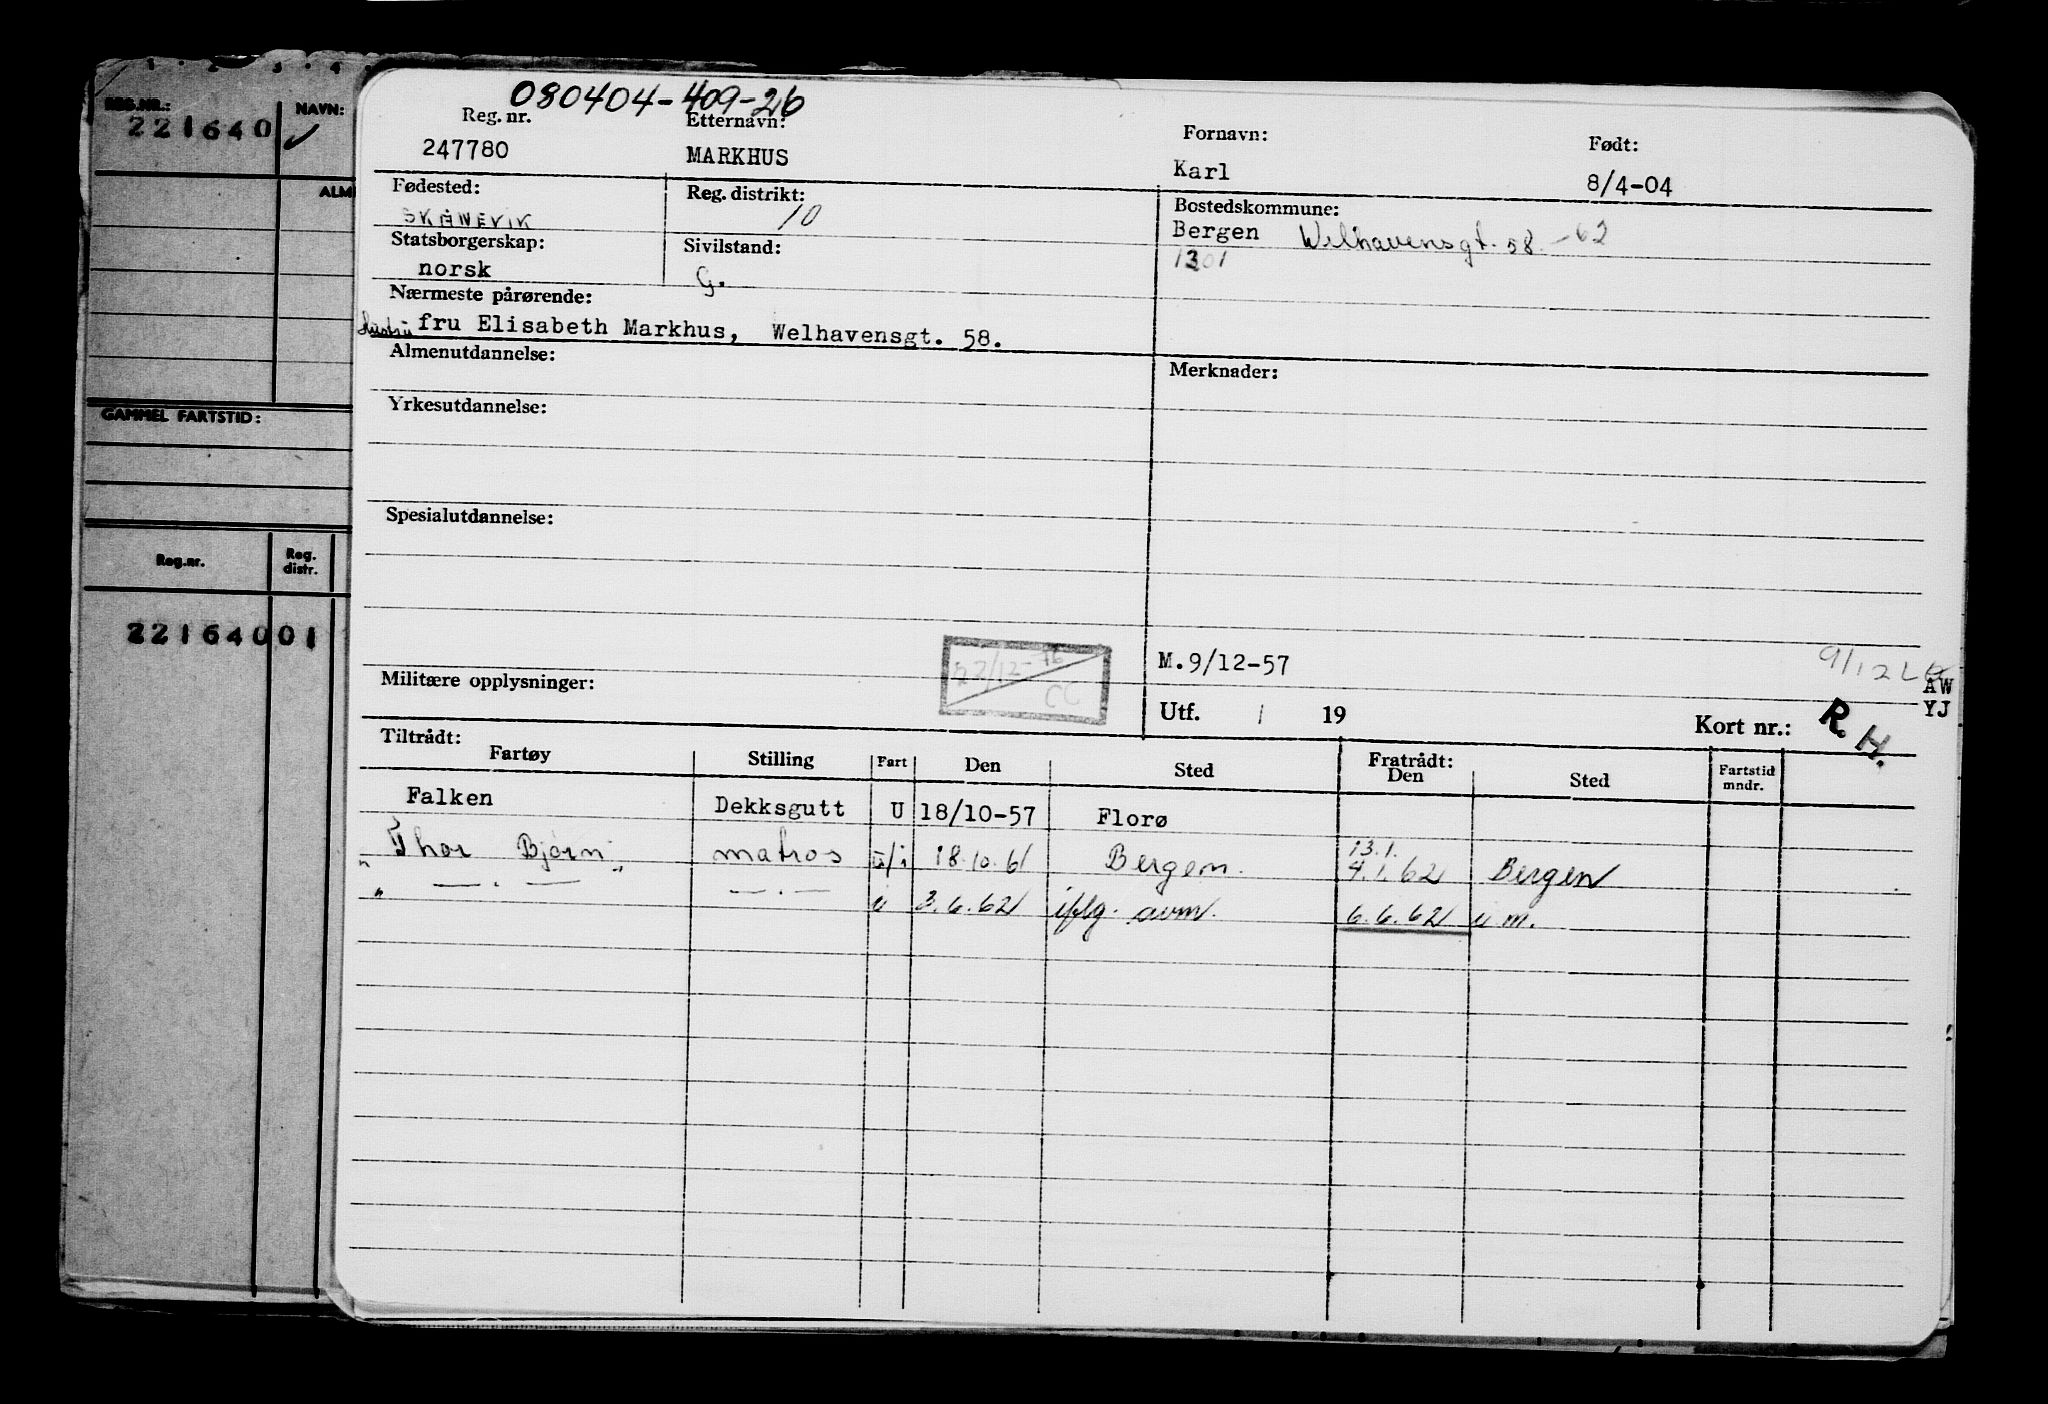 1 2 3 4
REG.NR.: NAVN:
221640
ALM
GAMMEL FARTSTID:
Reg.nr. Reg. distr.
22164001
080404-409-26
Reg. nr. Etternavn: Fornavn: Født:
247780 MARKHUS Karl 8/4-04
Fødested: Reg. distrikt: Bostedskommune:
SKÅNEVIK 10 Bergen Welhavensgt. 58 -62
Statsborgerskap: Sivilstand: 1301
norsk G.
Nærmeste pårørende:
hustru fru Elisabeth Markhus, Welhavensgt. 58.
Almenutdannelse: Merknader:
Yrkesutdannelse:
Spesialutdannelse:
M.9/12-57 9/12
Militære opplysninger: CC AW
Utf. / 19 Kort nr.: R. H. YJ
Tiltrådt: Fratrådt:
Fartøy Stilling Fart Den Sted Den Sted Fartstid mndr.
Falken Dekksgutt U 18/10-57 Florø
"Thor Bjørn" matros u/i 18.10.61 Bergen. 13.1. 4.1.62 Bergen
" — . — — . — u 3.6.62 iflg. avm. 6.6.62 u m.